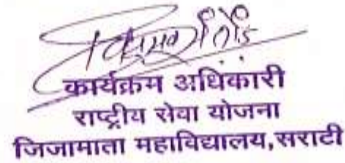 कार्यक्रम अधिकारी
राष्ट्रीय सेवा योजना
जिजामाता महाविद्यालय,सराटी